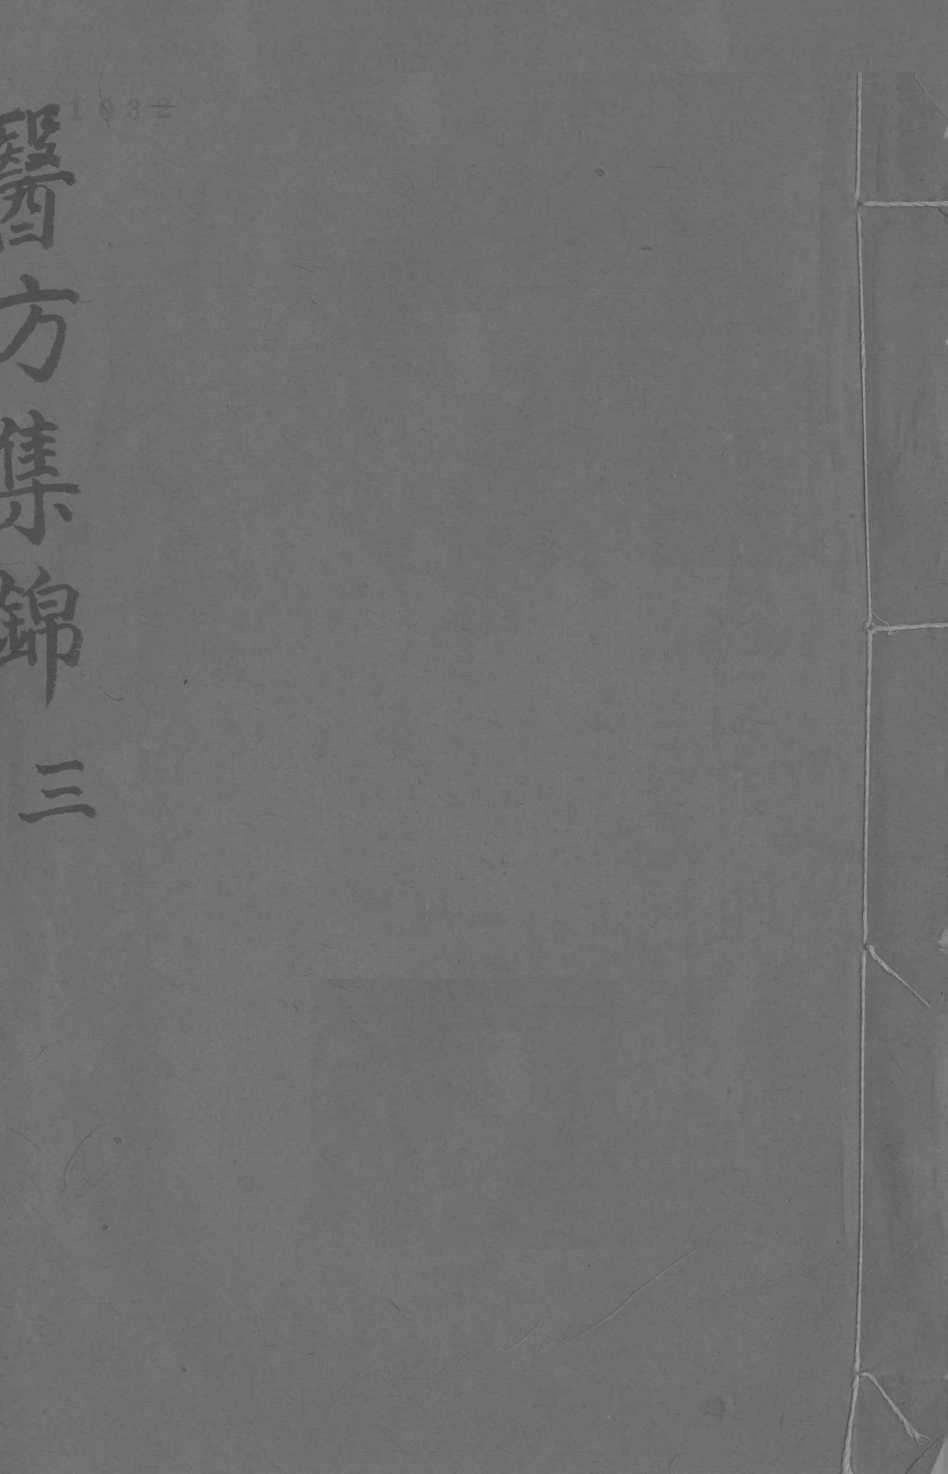 醫方集錦 三